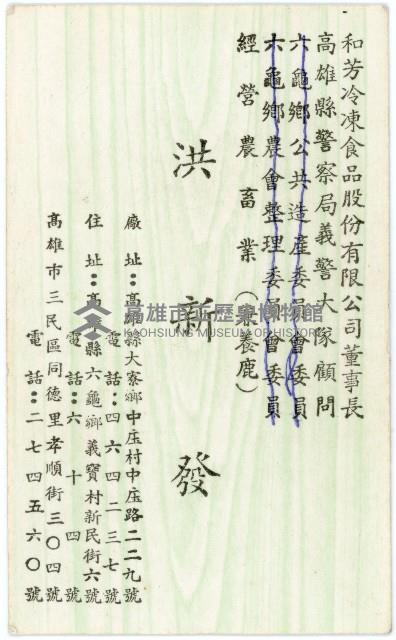 和芳冷凍食品股份有限公司董事長
高雄縣警察局義警大隊顧問
六龜鄉公共造產委員會委員
六龜鄉農會整理委員會委員
經營農畜業（兼養鹿）
洪新發
廠址：高雄縣大寮鄉中庄村中庄路二二九號
電話：四六四二三七號
住址：高雄縣六龜鄉義寶村新民街六號
電話：六十四號
高雄市三民區同德里孝順街三〇四號
電話：二七四五六〇號
高雄市立歷史博物館
KAOHSIUNG MUSEUM OF HISTORY